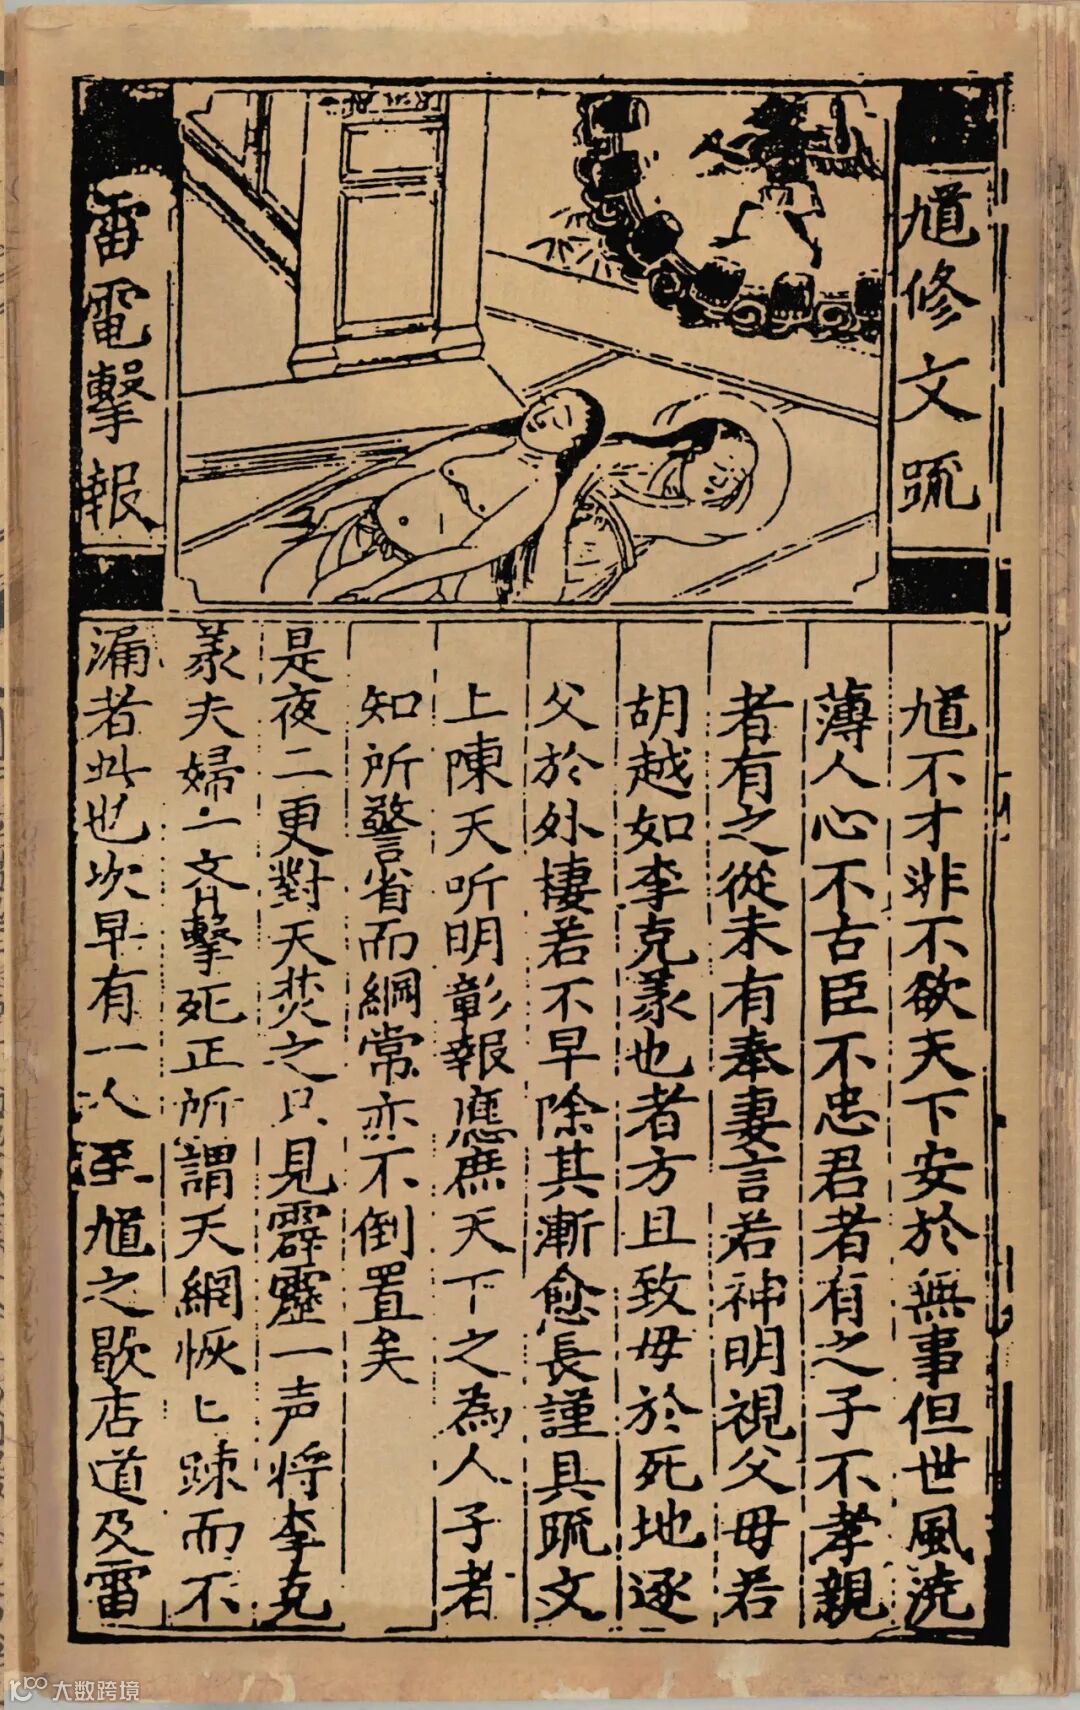 馗修文疏
雷電擊報
馗不才非不欲天下安於無事但世風澆
薄人心不古臣不忠君者有之子不孝親
者有之從未有奉妻言若神明視父母若
胡越如李克㒸也者方且致母於死地逐
父於外棲若不早除其漸愈長謹具疏文
上陳天听明彰報應庶天下之為人子者
知所警省而綱常亦不倒置矣
是夜二更對天焚之只見霹靂一声将李克
㒸夫婦一齐擊死正所謂天網恢〻踈而不
漏者此也次早有一人至馗之歇店道及雷
大数跨境